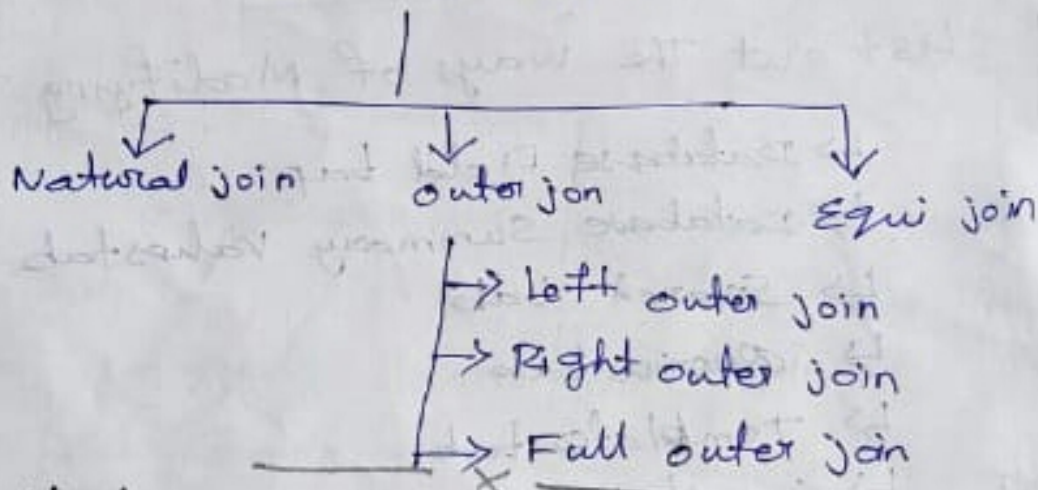 Natural join outer jon Equi join
Left outer join
Right outer join
Full outer join